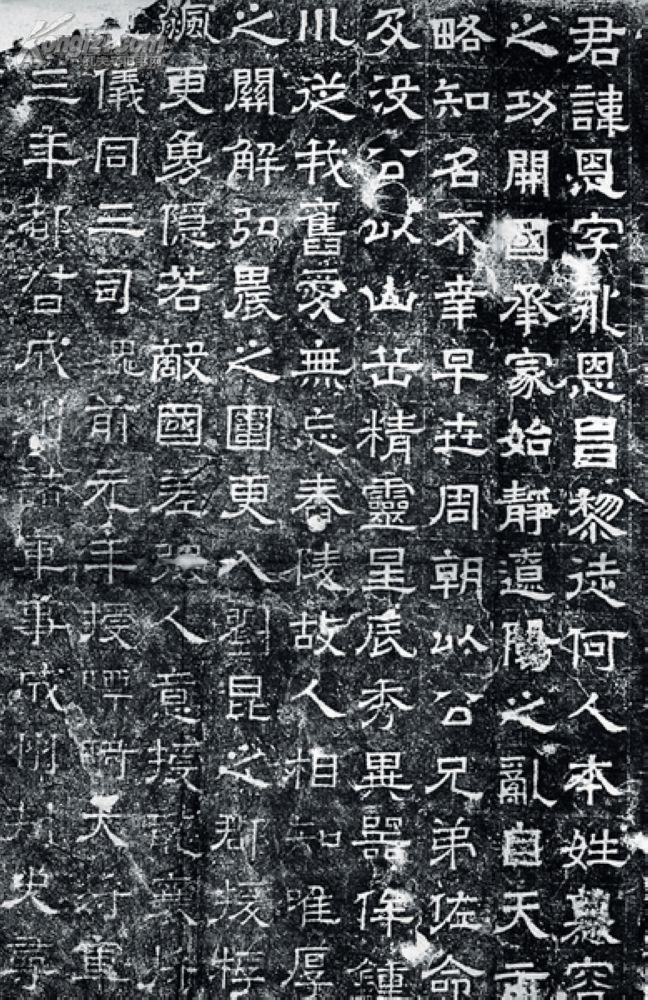 君諱恩字永恩昌黎徒何人本姓慕容
之功開國承家始靜遼陽之亂自天
略知名不幸早世周朝以公兄弟佐命
及沒公以山岳精靈星辰秀異器侔鍾
川從我舊愛無忘舂陵故人相知唯厚
之關解弘農之圍更入劉昆之郡援桴
更勇隱若敵國差強人意授龍驤將
儀同三司魏前元年授大將軍
三年都督成州諸軍事成州刺史尋